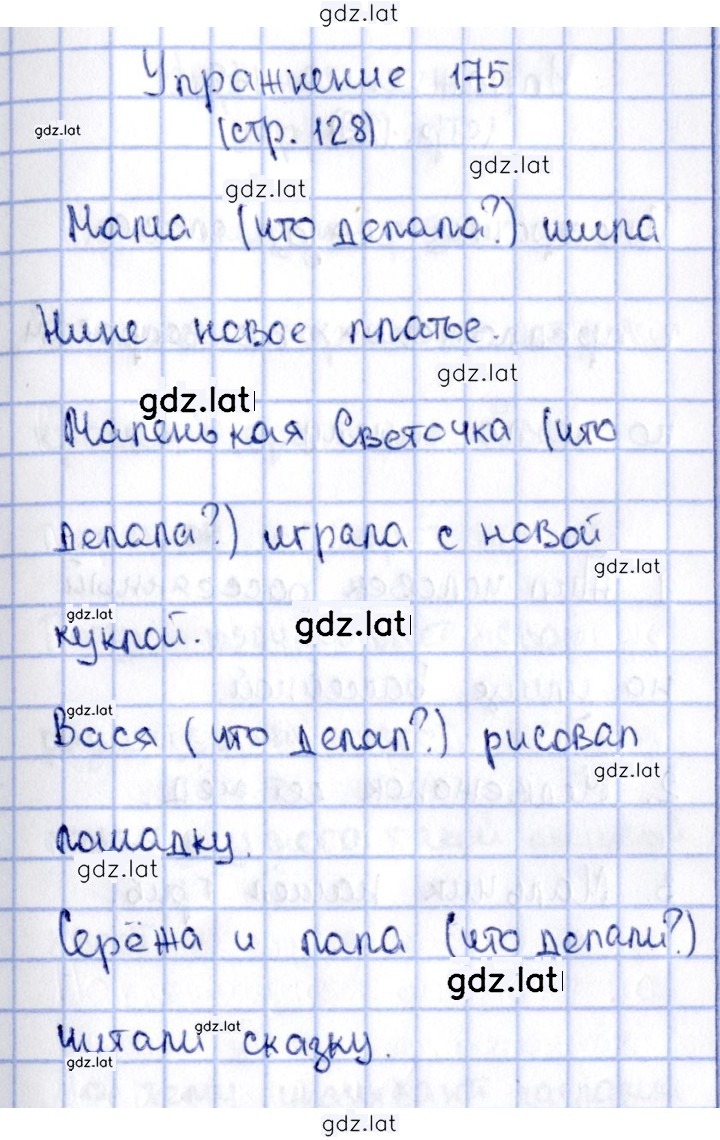 gdz.lat
Упражнение 175
gdz.lat
(стр. 128)
gdz.lat
gdz.lat
Мама (что делала?) шила
Нине новое платье.
gdz.lat
gdz.lat
Маленькая Светочка (что
делала?) играла с новой
gdz.lat
gdz.lat
gdz.lat
куклой.
gdz.lat
Вася (что делал?) рисовал
gdz.lat
лошадку.
gdz.lat
Серёжа и папа (что делали?)
gdz.lat
читали сказку.
gdz.lat
gdz.lat
gdz.lat